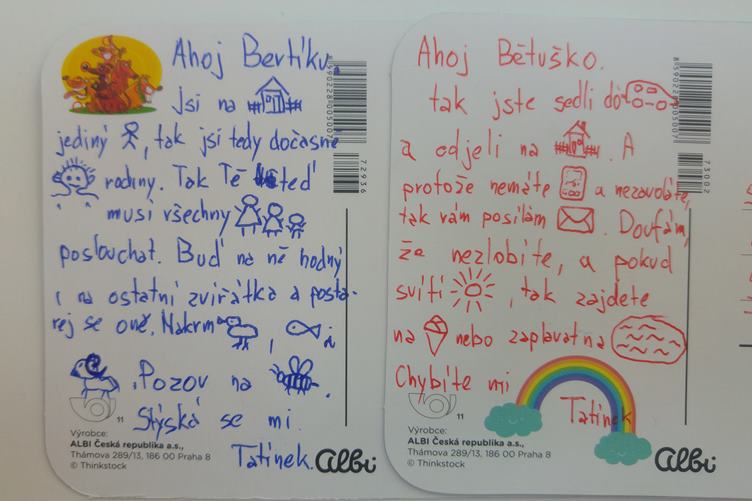 Ahoj Bertíku,
jsi na
jediný , tak jsi tedy dočasně
rodiny. Tak Tě teď
musí všechny
poslouchat. Buď na ně hodný
i na ostatní zvířátka a posta-
rej se o ně. Nakrm
, i
. Pozor na .
Stýská se mi.
Tatínek.
11
Výrobce:
ALBI Česká republika a.s.,
Thámova 289/13, 186 00 Praha 8
© Thinkstock
albi
8590228005007
72936
Ahoj Bětuško.
tak jste sedli do
a odjeli na . A
protože nemáte a nezavoláte,
tak vám posílám . Doufám,
že nezlobíte, a pokud
svítí , tak zajdete
na nebo zaplavat na
Chybíte mi
Tatínek
11
Výrobce:
ALBI Česká republika a.s.,
Thámova 289/13, 186 00 Praha 8
© Thinkstock
albi
8590228005007
73002